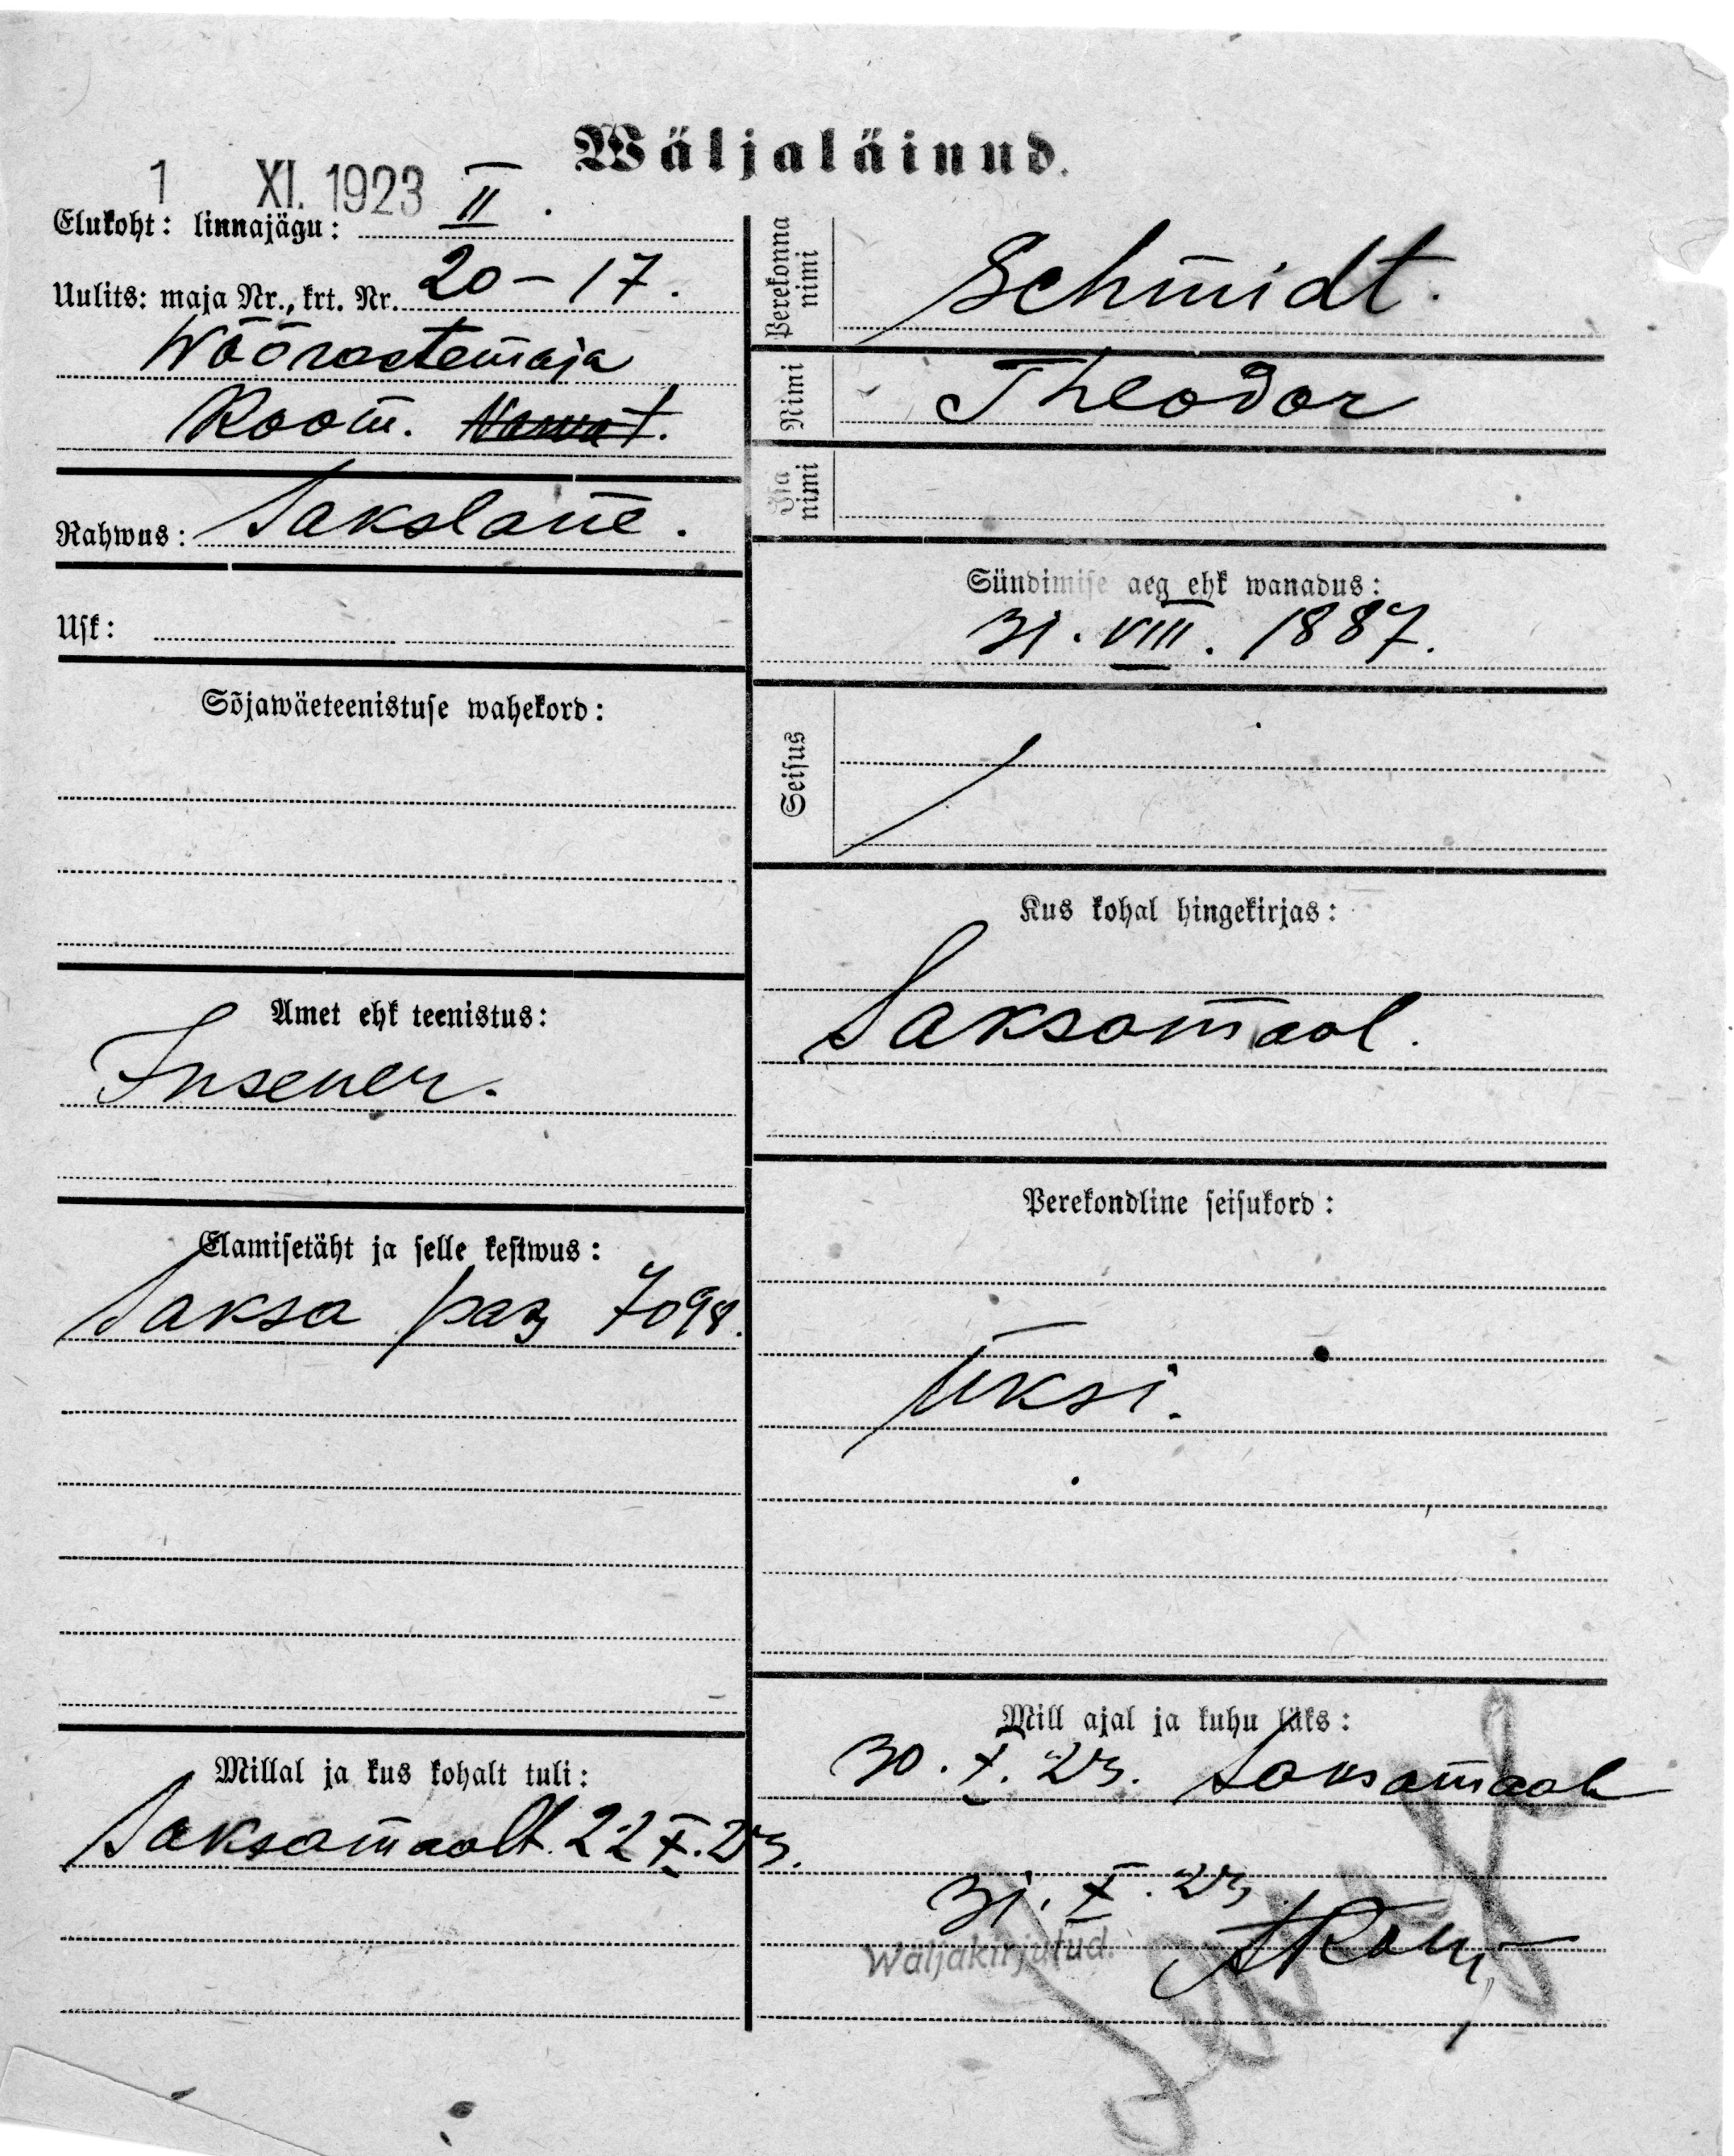 Wäljaläinud.
1 XI. 1923
Elukoht: linnajägu: II
Uulits: maja Nr., krt. Nr. 20-17.
Wõõrastemaja
Room.
Rahwus: Sakslane.
Usk:
Sõjawäeteenistuse wahekord:
Amet ehk teenistus:
Insener.
Elamisetäht ja selle kestwus:
Saksa pas 7098.
Millal ja kus kohalt tuli:
Saksamaalt. 22 X. 23.
Perekonna nimi Schmidt.
Nimi Theodor
Isa nimi
Sündimise aeg ehk wanadus:
31. VIII. 1887.
Seisus
Kus kohal hingekirjas:
Saksamaal.
Perekondline seisukord:
Üksi.
Mill ajal ja kuhu läks:
30. X. 23. Saksamaale
31. X. 23
Wäljakirjutud.